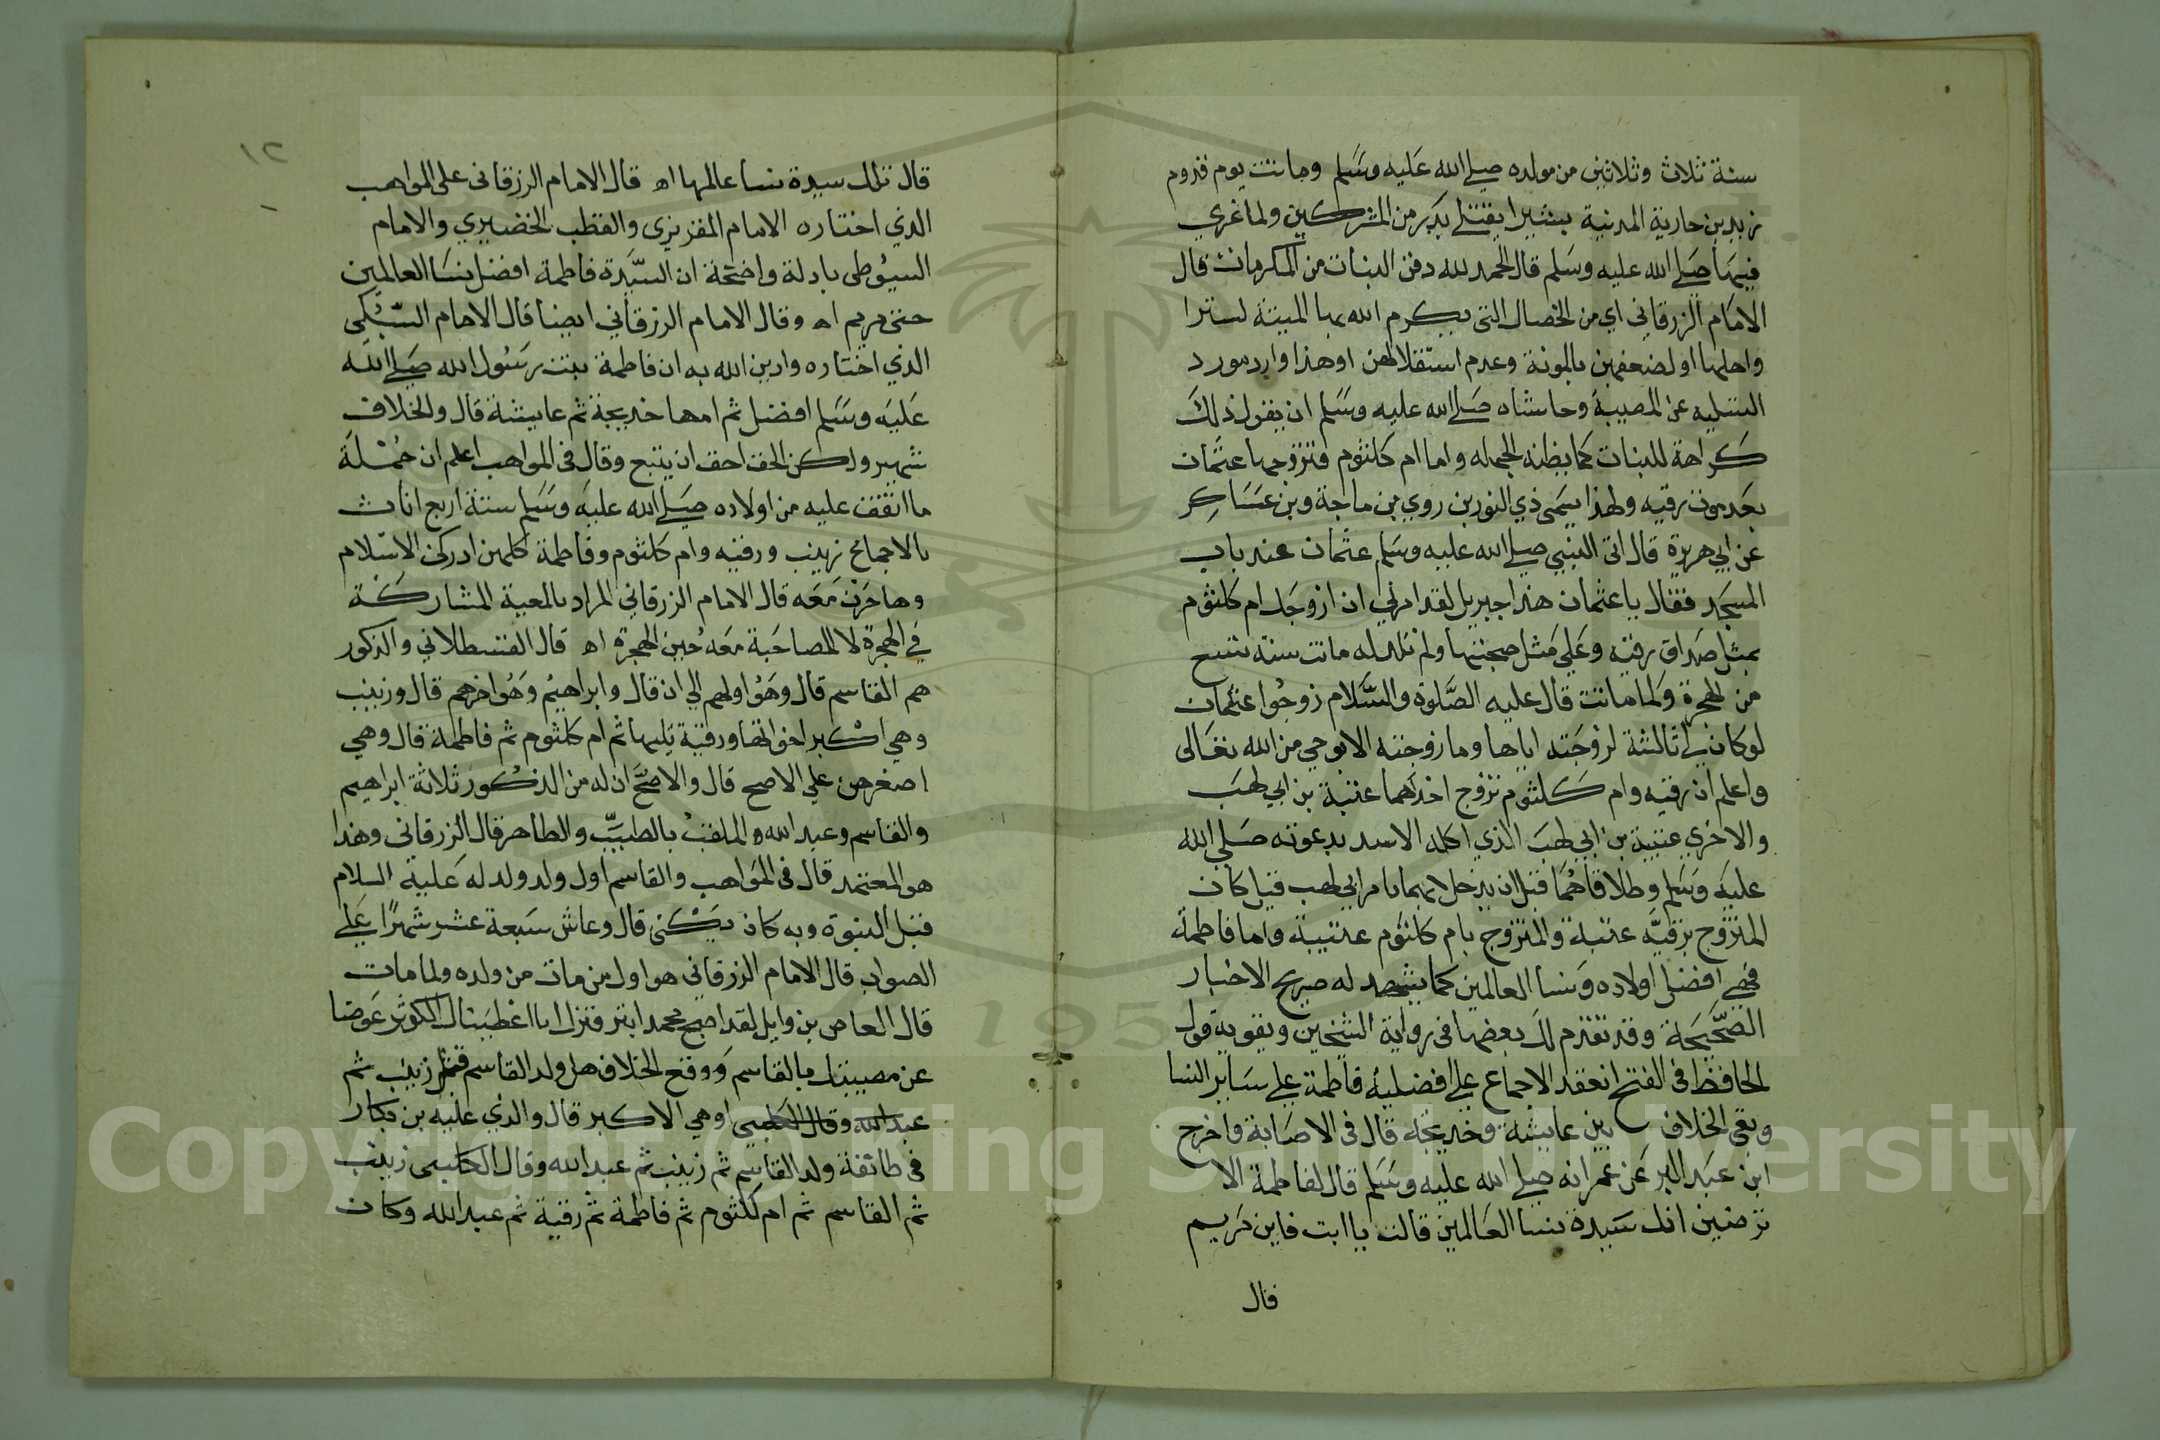 سنة ثلاث وثلاثين من مولده صلى الله عليه وسلم وماتت يوم قدوم
زيد بن حارثة المدينة بشيرا بقتلى بدر من المشركين ولما عزي
فيها صلى الله عليه وسلم قال الحمد لله دفن البنات من المكرمات قال
الامام الزرقاني اي من الخصال التي يكرم الله بها الميتة لسترا
واهلها او لضعفهن بالمونة وعدم استقلالهن او هذا وارد مورد
التسليه عن المصيبة وحاشاه صلى الله عليه وسلم ان يقول ذلك
كراهة للبنات كما يظنه الجهله واما ام كلثوم فتزوجها عثمان
بعد موت رقيه ولهذا يسمى ذي النورين روي بن ماجة وبن عساكر
عن ابي هريرة قال اتى النبي صلى الله عليه وسلم عثمان عند باب
المسجد فقال يا عثمان هذا جبريل لقد امرني ان ازوجك ام كلثوم
بمثل صداق رقيه وعلي مثل صحبتها ولم تلد له ماتت سنة تسع
من الهجرة ولما ماتت قال عليه الصلوة والسلام زوجوا عثمان
لو كان لي ثالثة لزوجته اياها وما زوجته الا بوحي من الله تعالى
واعلم ان رقيه وام كلثوم تزوج احدهما عتبة بن ابي لهب
والاخري عتيبة بن ابي لهب الذي اكله الاسد بدعوته صلى الله
عليه وسلم وطلاقاهما قبل ان يدخلا بهما بامر ابي لهب فقيل كان
المتزوج برقيه عتبة والمتزوج بام كلثوم عتيبة واما فاطمة
فهي افضل اولاده ونسا العالمين كما يشهد له صريح الاخبار
الصحيحة وقد تقدم لك بعضها في رواية الشيخين ويقويه قول
الحافظ في الفتح انعقد الاجماع على افضلية فاطمة على ساير النسا
وبقي الخلاف بين عايشة وخديجة قال في الاصابة واخرج
ابن عبد البر عن عمرانه صلى الله عليه وسلم قال لفاطمة الا
ترضين انك سيدة نسا العالمين قالت يا ابت فاين مريم
قال
١٢
قال تلك سيدة نسا عالمها اه قال الامام الزرقاني على المواهب
الذي اختاره الامام المقريزي والقطب الخضيري والامام
السيوطي بادلة واضحة ان السيدة فاطمة افضل نسا العالمين
حتى مريم اه وقال الامام الزرقاني ايضا قال الامام السبكي
الذي اختاره وادين الله به ان فاطمة بنت رسول الله صلى الله
عليه وسلم افضل ثم امها خديجة ثم عايشة قال والخلاف
شهير ولكن الحق احق ان يتبع وقال في المواهب اعلم ان جملة
ما اتفق عليه من اولاده صلى الله عليه وسلم ستة اربع اناث
بالاجماع زينب ورقيه وام كلثوم وفاطمة كلهن ادركن الاسلام
وهاجرن معه قال الامام الزرقاني المراد بالمعية المشاركة
في الهجرة لا المصاحبة معه حين الهجرة اه قال القسطلاني والذكور
هم القاسم قال وهو اولهم الي ان قال وابراهيم وهو اخرهم قال وزينب
وهي اكبر اخواتها ورقية تليها ثم ام كلثوم ثم فاطمة قال وهي
اصغرهن على الاصح قال والاصح ان له من الذكور ثلاثة ابراهيم
والقاسم وعبد الله والملقب بالطيب والطاهر قال الزرقاني وهذا
هو المعتمد قال في المواهب والقاسم اول ولد ولد له عليه السلام
قبل النبوة وبه كان يكنى قال وعاش سبعة عشر شهرا على
الصواب قال الامام الزرقاني هو اول من مات من ولده ولما مات
قال العاص بن وايل لقد اصبح محمد ابتر فنزل انا اعطيناك الكوثر عوضا
عن مصيبتك بالقاسم ووقع الخلاف هل ولد القاسم قبل زينب ثم
عبد الله وقال الكلبي او هي الاكبر قال والذي عليه بن بكار
في طائفة ولد القاسم ثم زينب ثم عبد الله وقال الكلبي زينب
ثم القاسم ثم ام كلثوم ثم فاطمة ثم رقية ثم عبد الله وكان
Copyright © King Saud University
1957